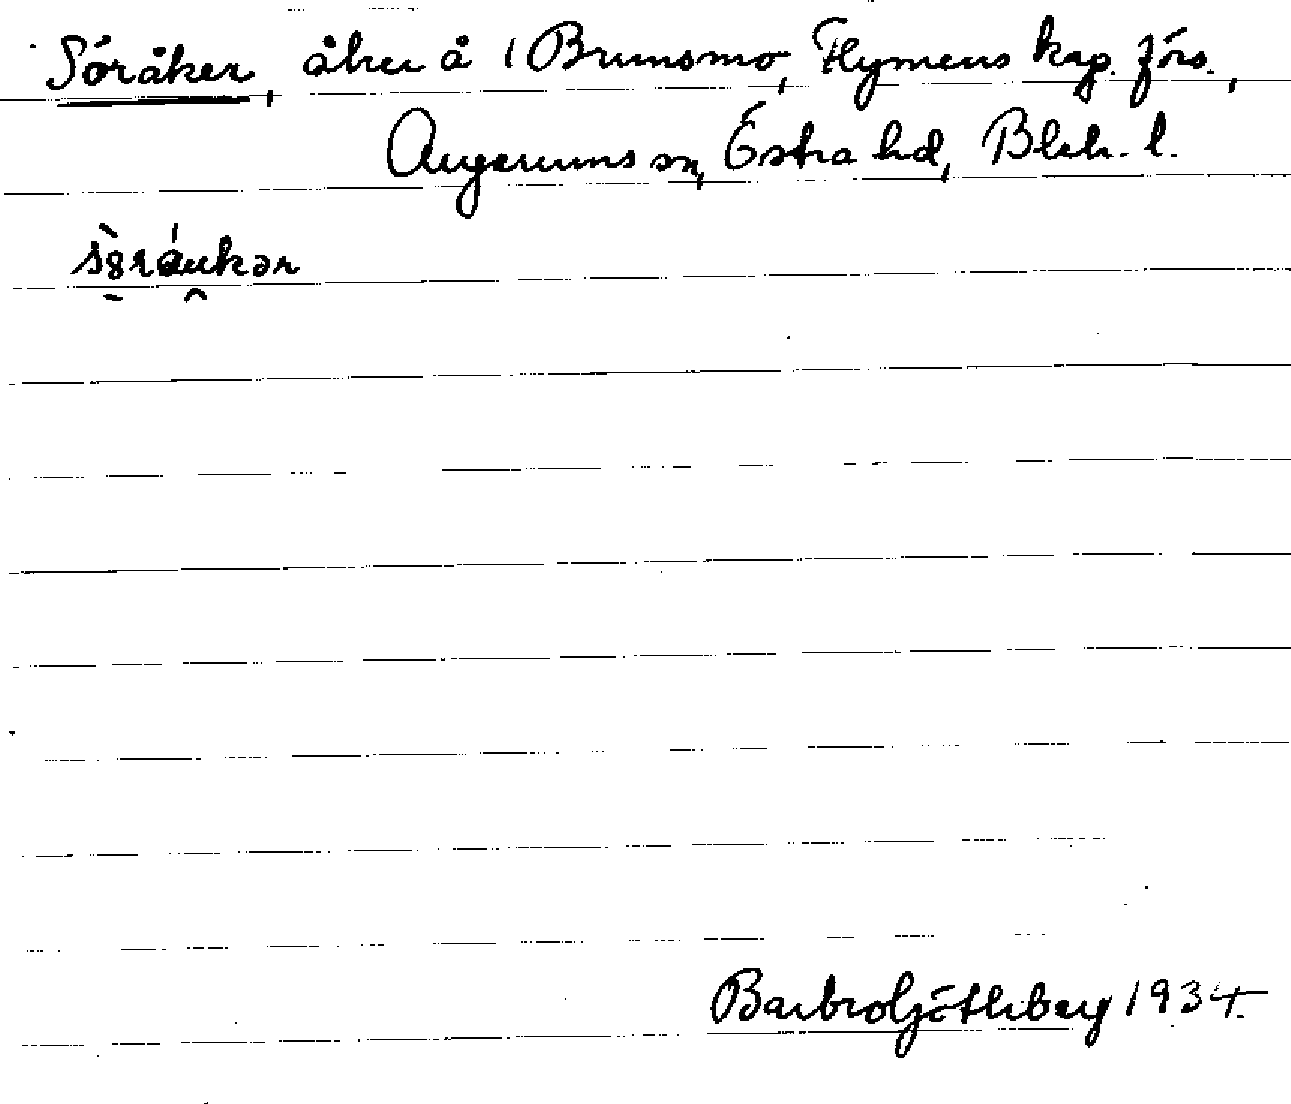 Söråker, åker å 1 Brunsmo, Flymens kap. förs.,
Augerums sn, Östra hd, Blek. l.
Barbro Göthberg 1934.